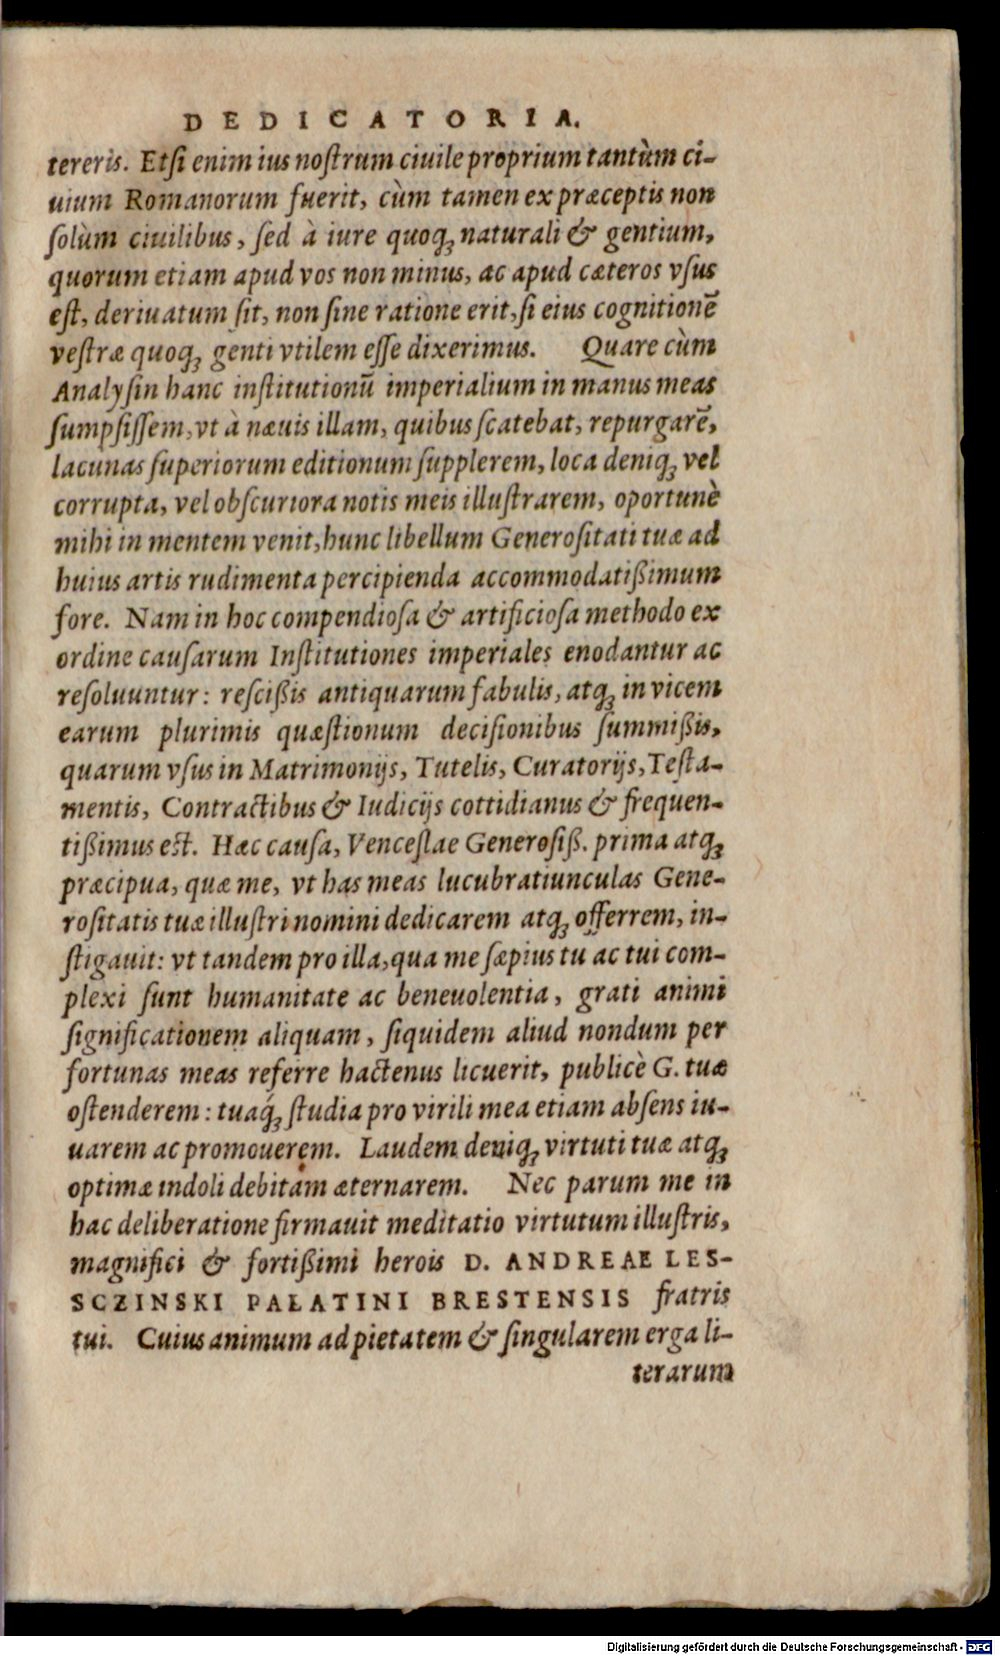 DEDICATORIA.
tereris. Etſi enim ius noſtrum ciuile proprium tantùm ci-
uium Romanorum fuerit, cùm tamen ex præceptis non
ſolùm ciuilibus, ſed à iure quoqꝫ naturali & gentium,
quorum etiam apud vos non minus, ac apud cæteros vſus
eſt, deriuatum ſit, non ſine ratione erit, ſi eius cognitionē
veſtræ quoqꝫ genti vtilem eſſe dixerimus. Quare cùm
Analyſin hanc inſtitutionū imperialium in manus meas
ſumpſiſſem, vt à næuis illam, quibus ſcatebat, repurgarē,
lacunas ſuperiorum editionum ſupplerem, loca deniqꝫ vel
corrupta, vel obſcuriora notis meis illuſtrarem, oportunè
mihi in mentem venit, hunc libellum Generoſitati tuæ ad
huius artis rudimenta percipienda accommodatißimum
fore. Nam in hoc compendioſa & artificioſa methodo ex
ordine cauſarum Inſtitutiones imperiales enodantur ac
reſoluuntur: reſcißis antiquarum fabulis, atqꝫ in vicem
earum plurimis quæſtionum deciſionibus ſummißis,
quarum vſus in Matrimonijs, Tutelis, Curatorijs, Teſta-
mentis, Contractibus & Iudicijs cottidianus & frequen-
tißimus eſt. Hæc cauſa, Venceſlae Generoſiß. prima atqꝫ
præcipua, quæ me, vt has meas lucubratiunculas Gene-
roſitatis tuæ illuſtri nomini dedicarem atqꝫ offerrem, in-
ſtigauit: vt tandem pro illa, qua me ſæpius tu ac tui com-
plexi ſunt humanitate ac beneuolentia, grati animi
ſignificationem aliquam, ſiquidem aliud nondum per
fortunas meas referre hactenus licuerit, publicè G. tuæ
oſtenderem: tuaq́ꝫ ſtudia pro virili mea etiam abſens iu-
uarem ac promouerem. Laudem deniqꝫ virtuti tuæ atqꝫ
optimæ indoli debitam æternarem. Nec parum me in
hac deliberatione firmauit meditatio virtutum illuſtris,
magnifici & fortißimi herois D. ANDREAE LES-
SCZINSKI PALATINI BRESTENSIS fratris
tui. Cuius animum ad pietatem & ſingularem erga li-
terarum
Digitalisierung gefördert durch die Deutsche Forschungsgemeinschaft - DFG